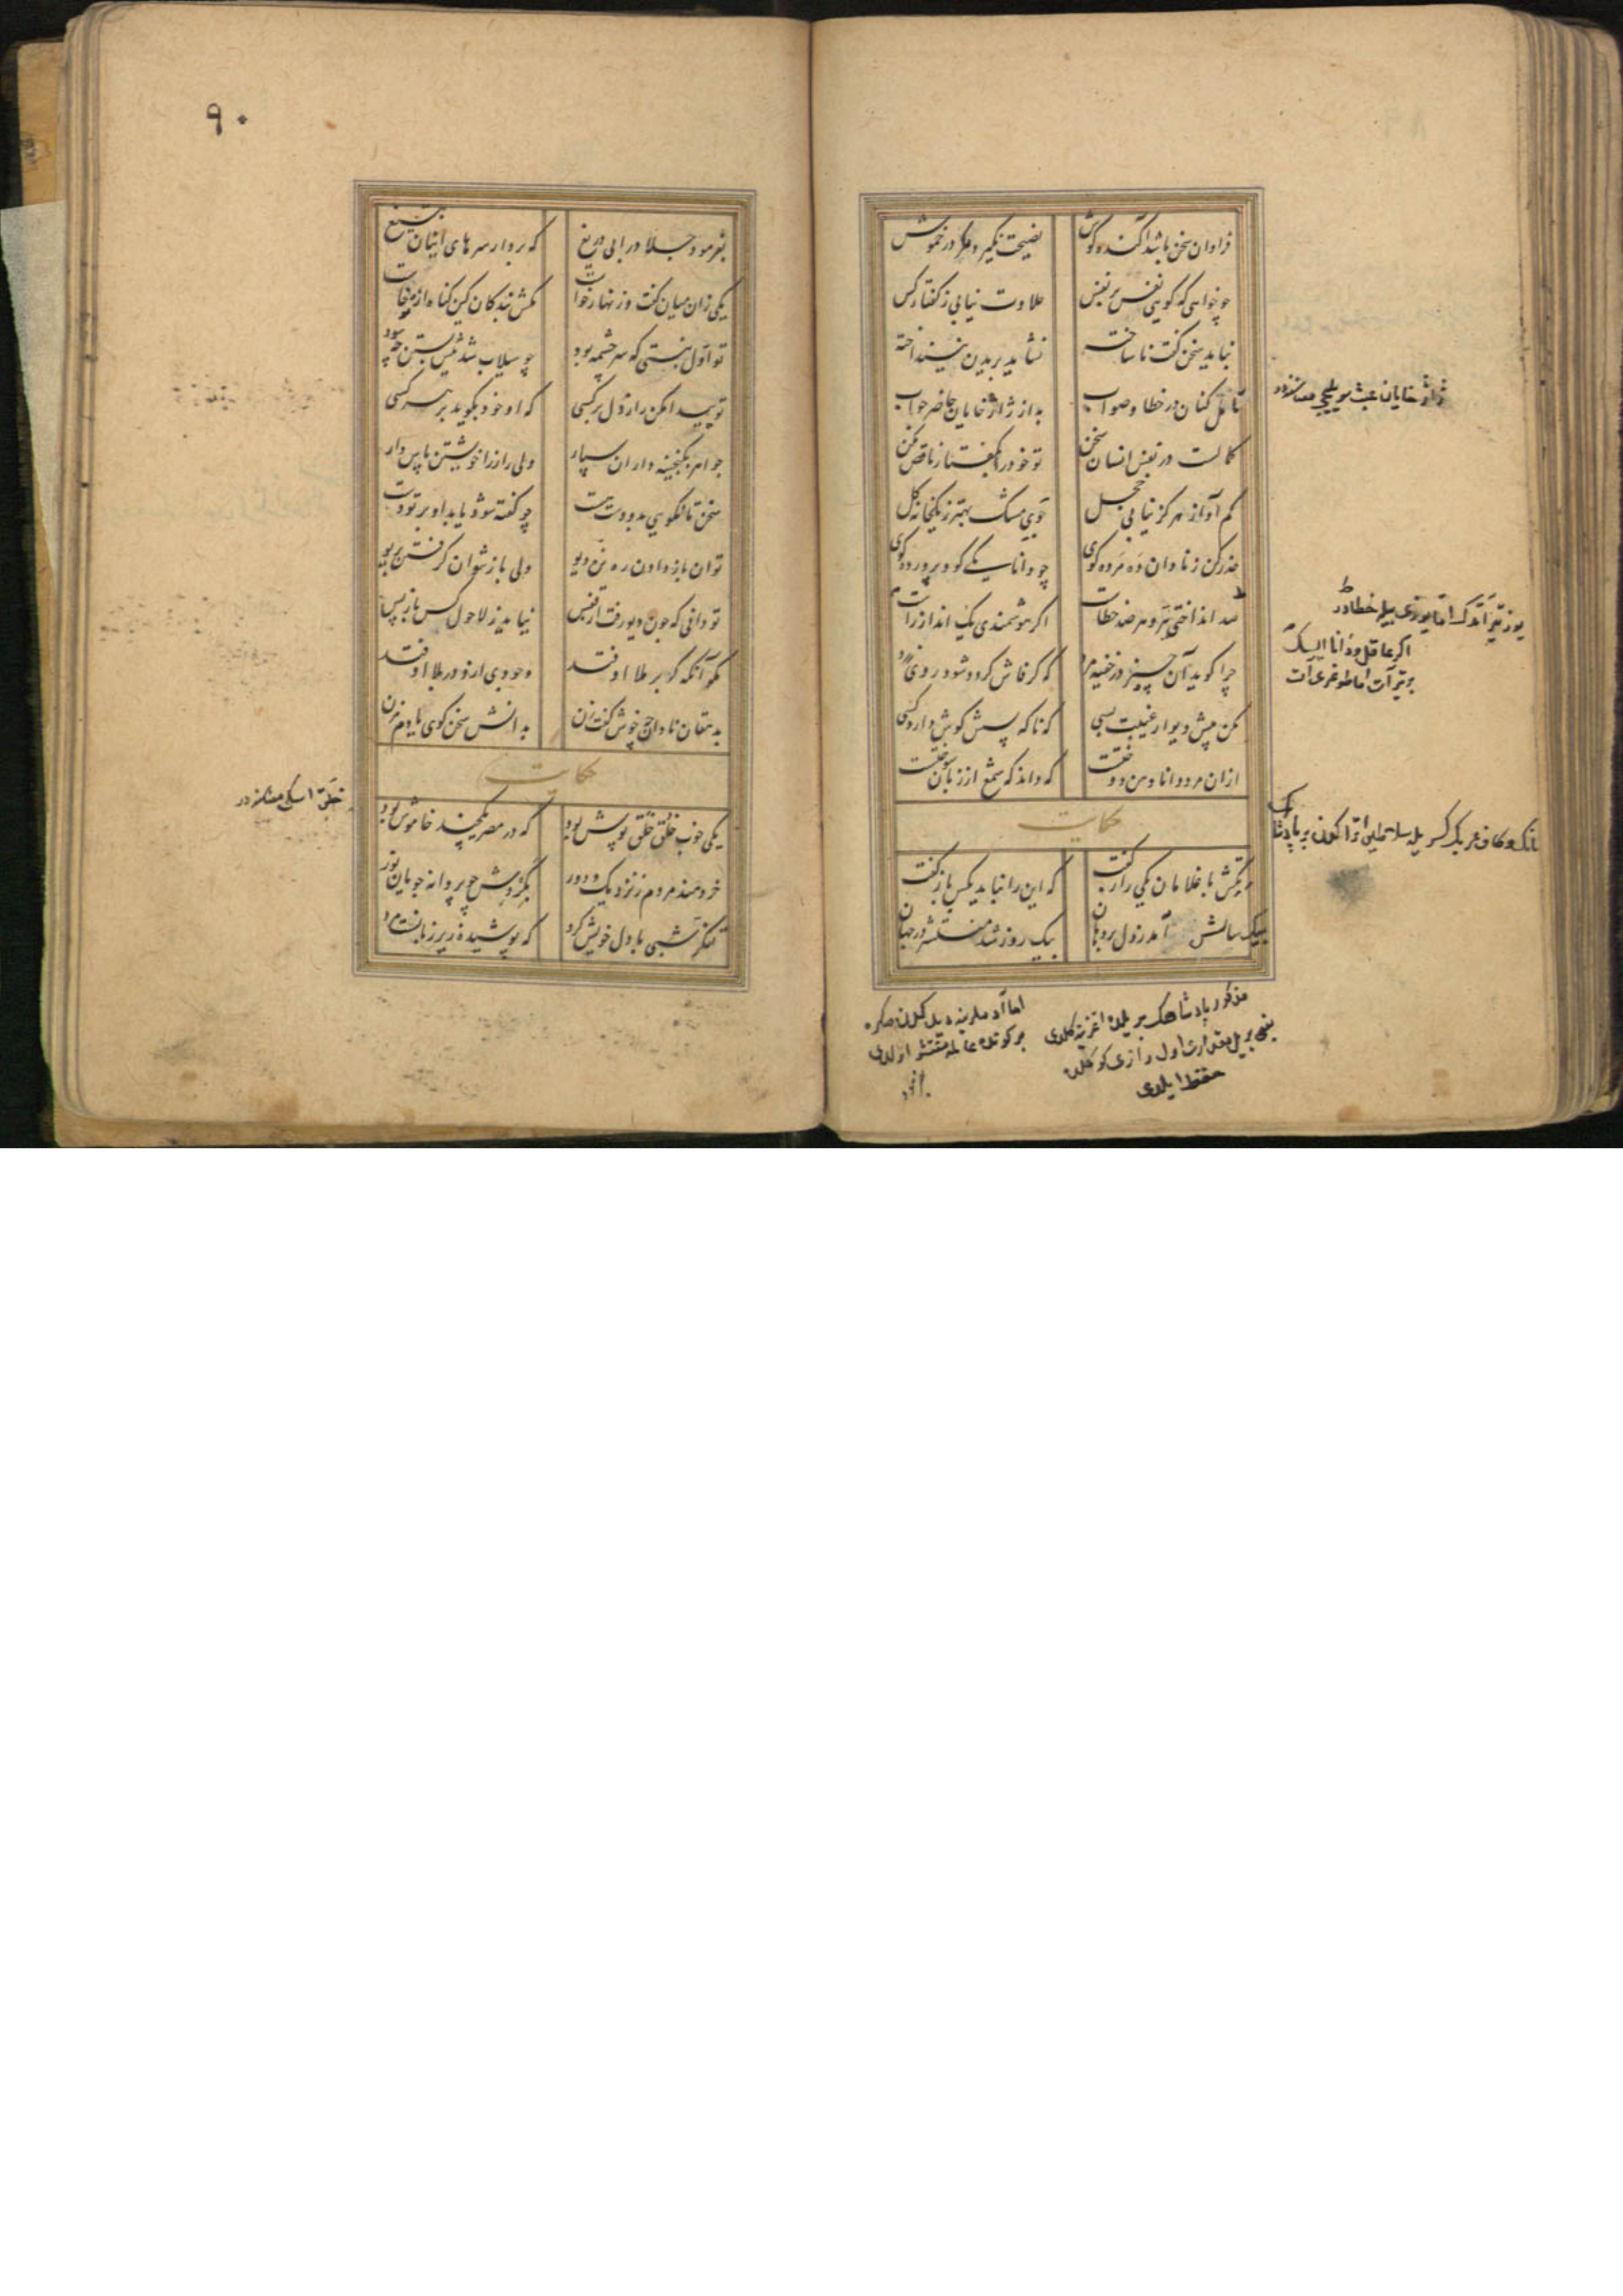 فراوان سخن باشد آکنده گوش نصیحت نگیرد مگر در خموش
چو خواهی که گویی نفس بر نفس حلاوت نیابی ز گفتار کس
نباید سخن گفت ناساخته نشاید بریدن نینداخته
تأمل کنان در خطا و صواب به از ژاژخایان حاضر جواب
کمالست در نفس انسان سخن تو خود را بگفتار ناقص مکن
کم آواز هرگز نیابی خجل جوی مشک بهتر ز یکخانه گل
حذر کن ز نادان ده مرده گوی چو دانا یکی گو و پرورده گوی
صد انداختی تیر و هر صد خطاست اگر هوشمندی یک انداز راست
چرا گوید آن چیز در خفیه مرد که گر فاش گردد شود روی زرد
مکن پیش دیوار غیبت بسی که ناگه پسش گوش دارد کسی
ازان مرد دانا دهن دوختست که داند که شمع از زبان سوختست
حکایت
تکش با غلامان یکی راز گفت که این را نباید بکس باز گفت
بیک سالش آمد ز دل بر دهان بیک روز شد منتشر در جهان
ژاژ خایان عبث سویلیجی معناسنه در
یوز تیر آتدک اما یوزی بیله خطادر
اگر عاقل و دانا ایسک
بر تیر آت اما طوغری آت
مذکور پادشاهک بر یلده اغزینه کلدی
یعنی بر ییل مقداری اول رازی کوکلده
حفظ ایلدی
بر کونده عالمه منتشر اولدی
۹۰
بفرمود جلاد را بی دریغ که بردار سرهای اینان بتیغ
یکی زان میان گفت و زنهار خواست مکش بندگان کین گناه از تو خاست
تو اول نبستی که سرچشمه بود چو سیلاب شد پیش بستن چه سود
تو پیدا مکن راز دل بر کسی که او خود بگوید بر هر کسی
جواهر بگنجینه داران سپار ولی راز را خویشتن پاس دار
سخن تا نگویی برو دست هست چو گفته شود یابد او بر تو دست
توان باز دادن ره نره دیو ولی باز نتوان گرفتن بریو
تو دانی که چون دیو رفت از قفس نیاید ز لاحول کس باز پس
مگو آنکه گر بر ملا اوفتد وجودی ازو در بلا اوفتد
بدهقان نادان چه خوش گفت زن بدانش سخن گوی یا دم مزن
حکایت
یکی خوب خلق خلق پوش بود که در مصر یکچند خاموش بود
خردمند مردم ز نزدیک و دور بگردش چو پروانه جویان نور
تفکر شبی با دل خویش کرد که پوشیده زیر زبانست مرد
خلق اسکی معناسنه در